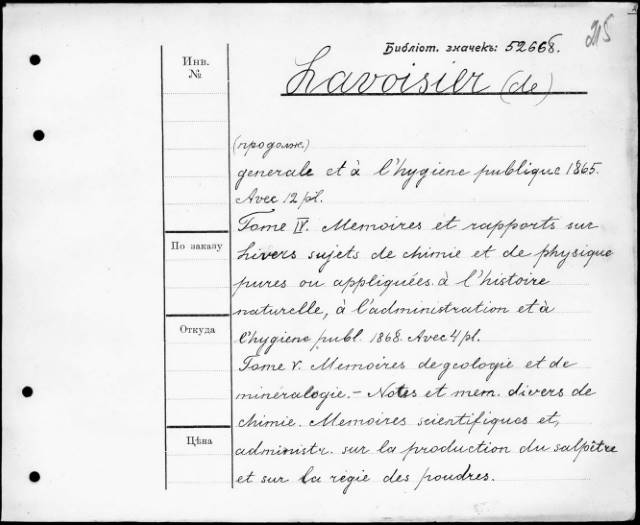 215
Библіот. значекъ: 52668.
Инв.
№
Lavoisier (de)
(продолж.)
generale et à l'hygiene publique 1865.
Avec 12 pl.
Tome IV. Memoires et rapports sur
hivers sujets de chimie et de physique
По заказу
pures ou appliquées à l'histoire
naturelle, à l'administration et à
Откуда
l'hygiene publ. 1868. Avec 4 pl.
Tome V. Memoires de geologie et de
mineralogie. – Notes et mem. divers de
chimie. Memoires scientifiques et,
Цѣна
administr. sur la production du salpêtre
et sur la régie des poudres.